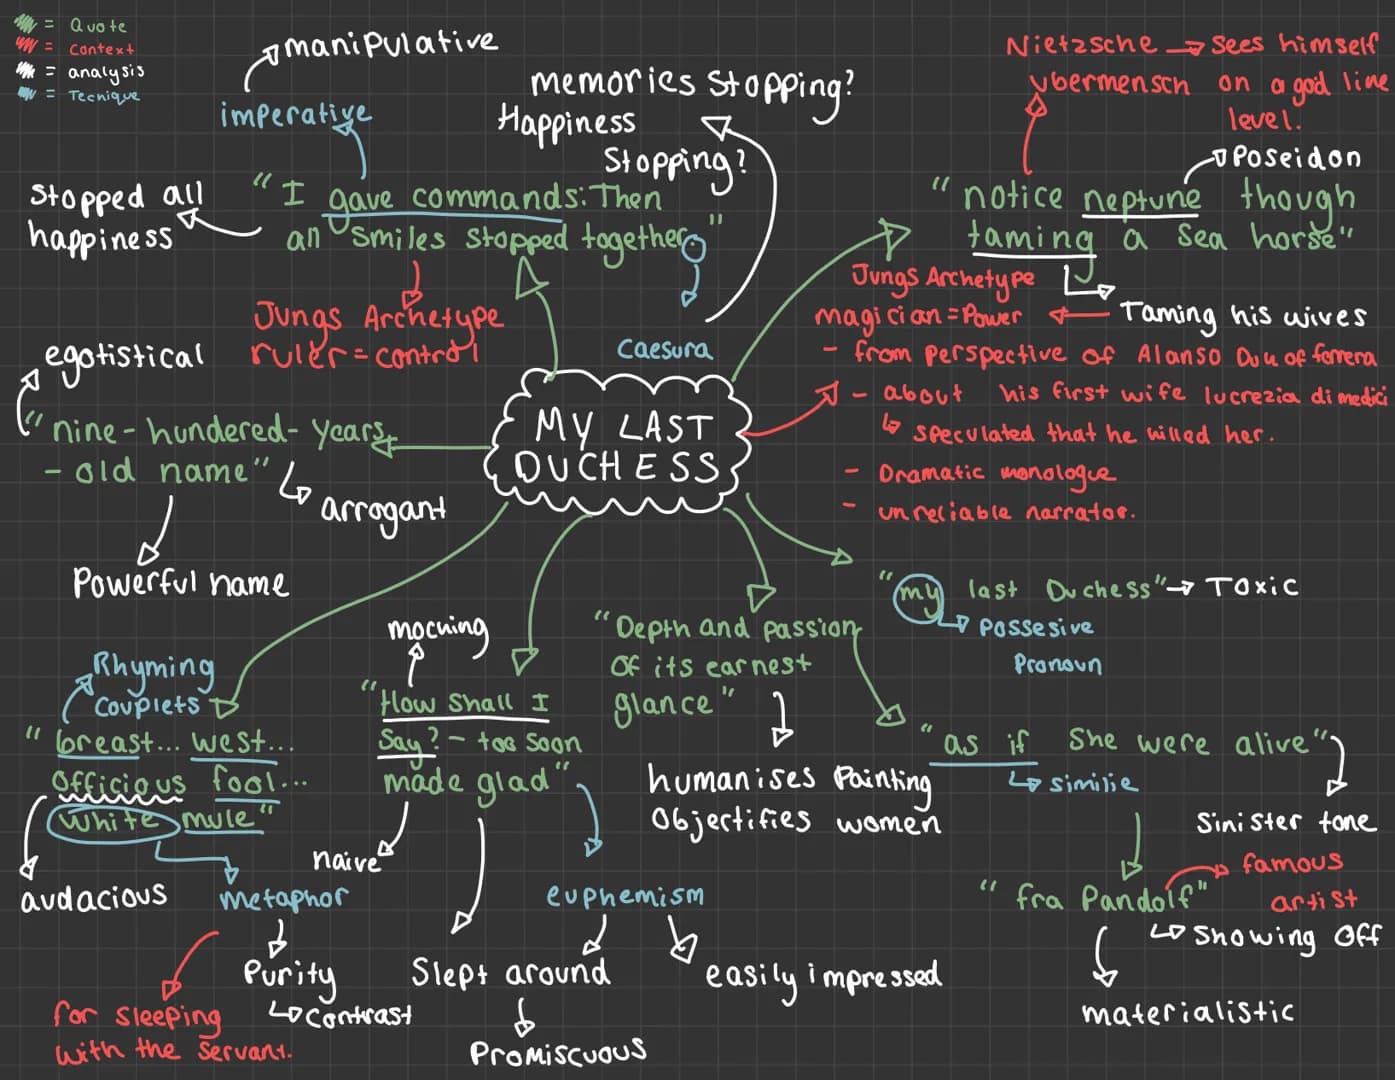 = Quote
= Context
= analysis
= Tecnique
manipulative
imperative
"I gave commands: Then
all smiles stopped together."
Stopped all
happiness
Jungs Archetype
ruler = control
memories stopping?
Happiness
Stopping?
caesura
Nietzsche → Sees himself
ubermensch on a god line
level.
Poseidon
"notice neptune though
taming a sea horse"
Taming his wives
Jungs Archetype
magician = Power
- from perspective of Alanso Duu of ferrera
- about his first wife lucrezia di medici
↳ speculated that he killed her.
- Dramatic monologue
- unreliable narrator.
egotistical
"nine-hundered-years
-old name"
arrogant
Powerful name
MY LAST
DUCHESS
"my last Duchess" → Toxic
possesive
Pronoun
Rhyming
couplets
"breast... west...
officious fool...
white mule"
audacious
metaphor
Purity
↳ contrast
for sleeping
with the servant.
mocking
"How shall I
say? - too soon
made glad"
naive
Slept around
Promiscuous
euphemism
easily impressed
"Depth and passion
of its earnest
glance"
humanises painting
objectifies women
"as if she were alive"
↳ similie
Sinister tone
"fra Pandolf"
famous
artist
↳ showing off
materialistic